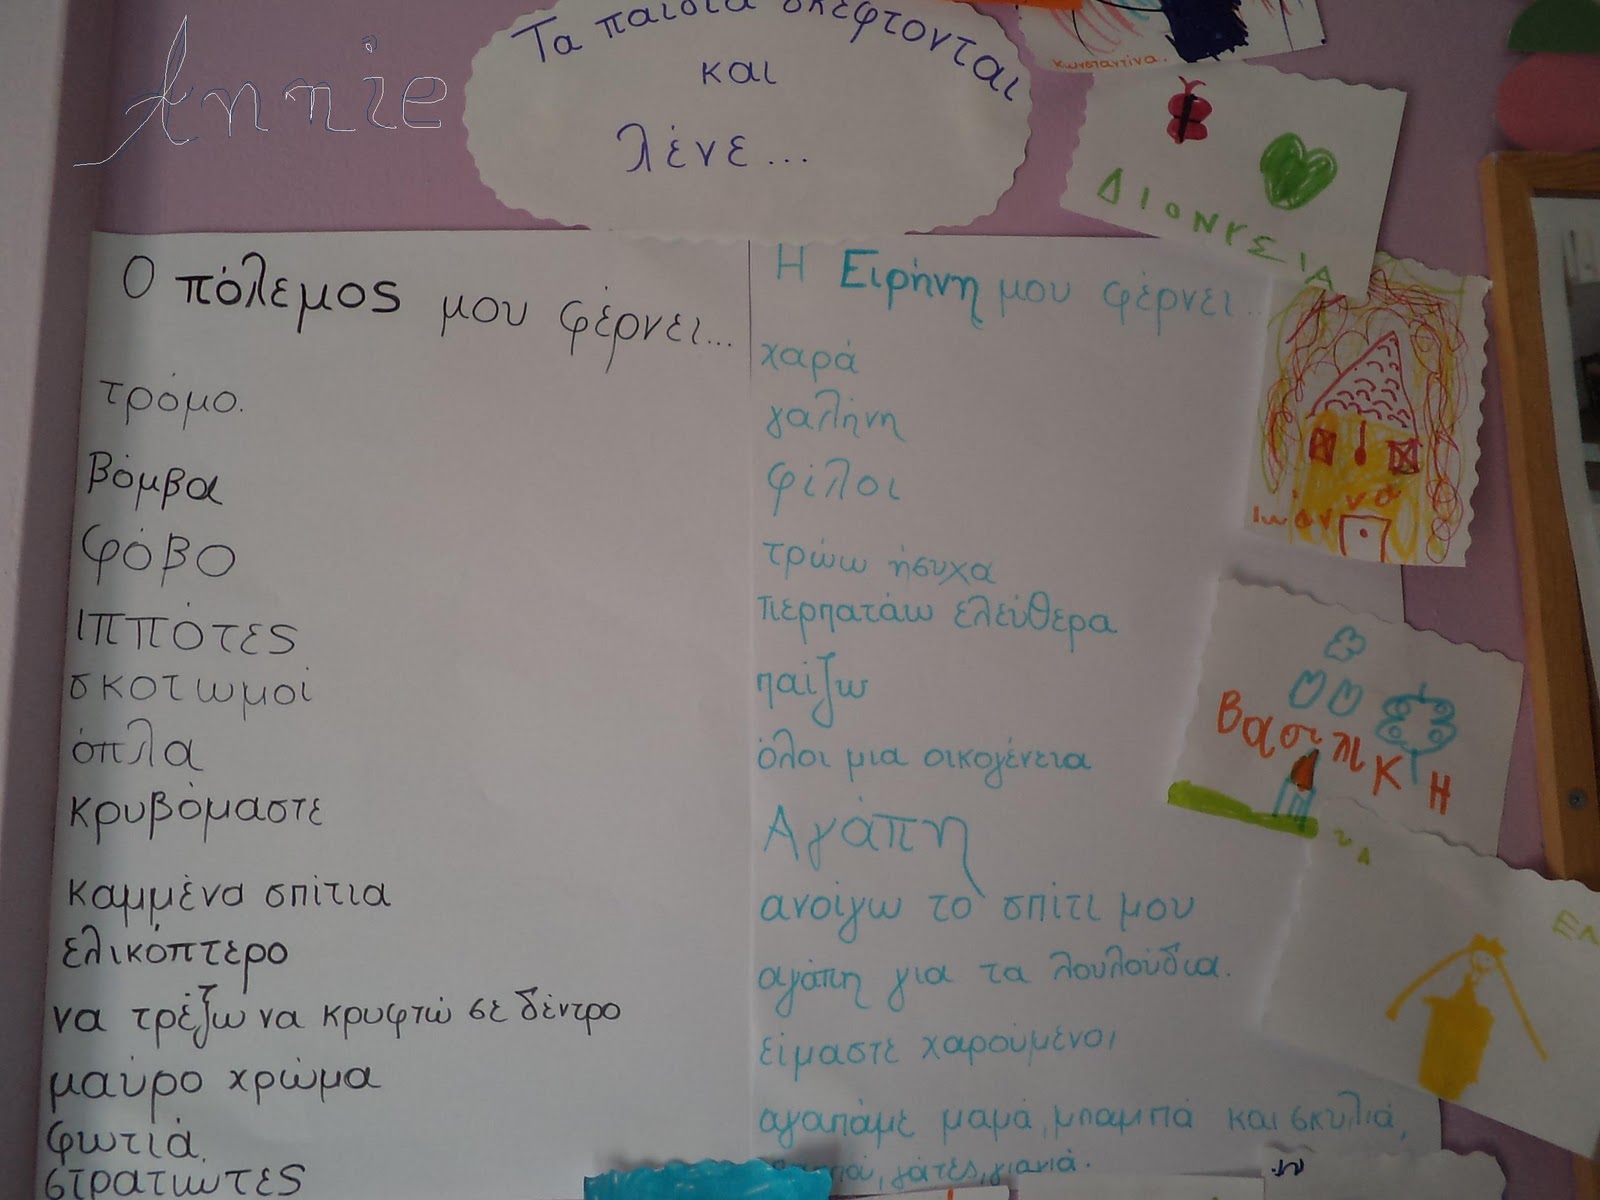 Annie
Τα παιδιά σκέφτονται
και
λένε...
κωνσταντίνα.
ΔΙΟΝΥΣΙΑ
Ο πόλεμος μου φέρνει...
τρόμο.
βόμβα
φόβο
ιππότες
σκοτωμοί
όπλα
κρυβόμαστε
καμμένα σπίτια
ελικόπτερο
να τρέξω να κρυφτώ σε δέντρο
μαύρο χρώμα
φωτιά.
στρατιώτες
Η Ειρήνη μου φέρνει...
χαρά
γαλήνη
φίλοι
τρώω ήσυχα
περπατάω ελεύθερα
παίζω
όλοι μια οικογένεια
Αγάπη
ανοίγω το σπίτι μου
αγάπη για τα λουλούδια.
είμαστε χαρούμενοι
αγαπάμε μαμά, μπαμπά και σκυλιά,
γάτες, γιαγιά.
Ιωάννα
ΒασιλικΗ